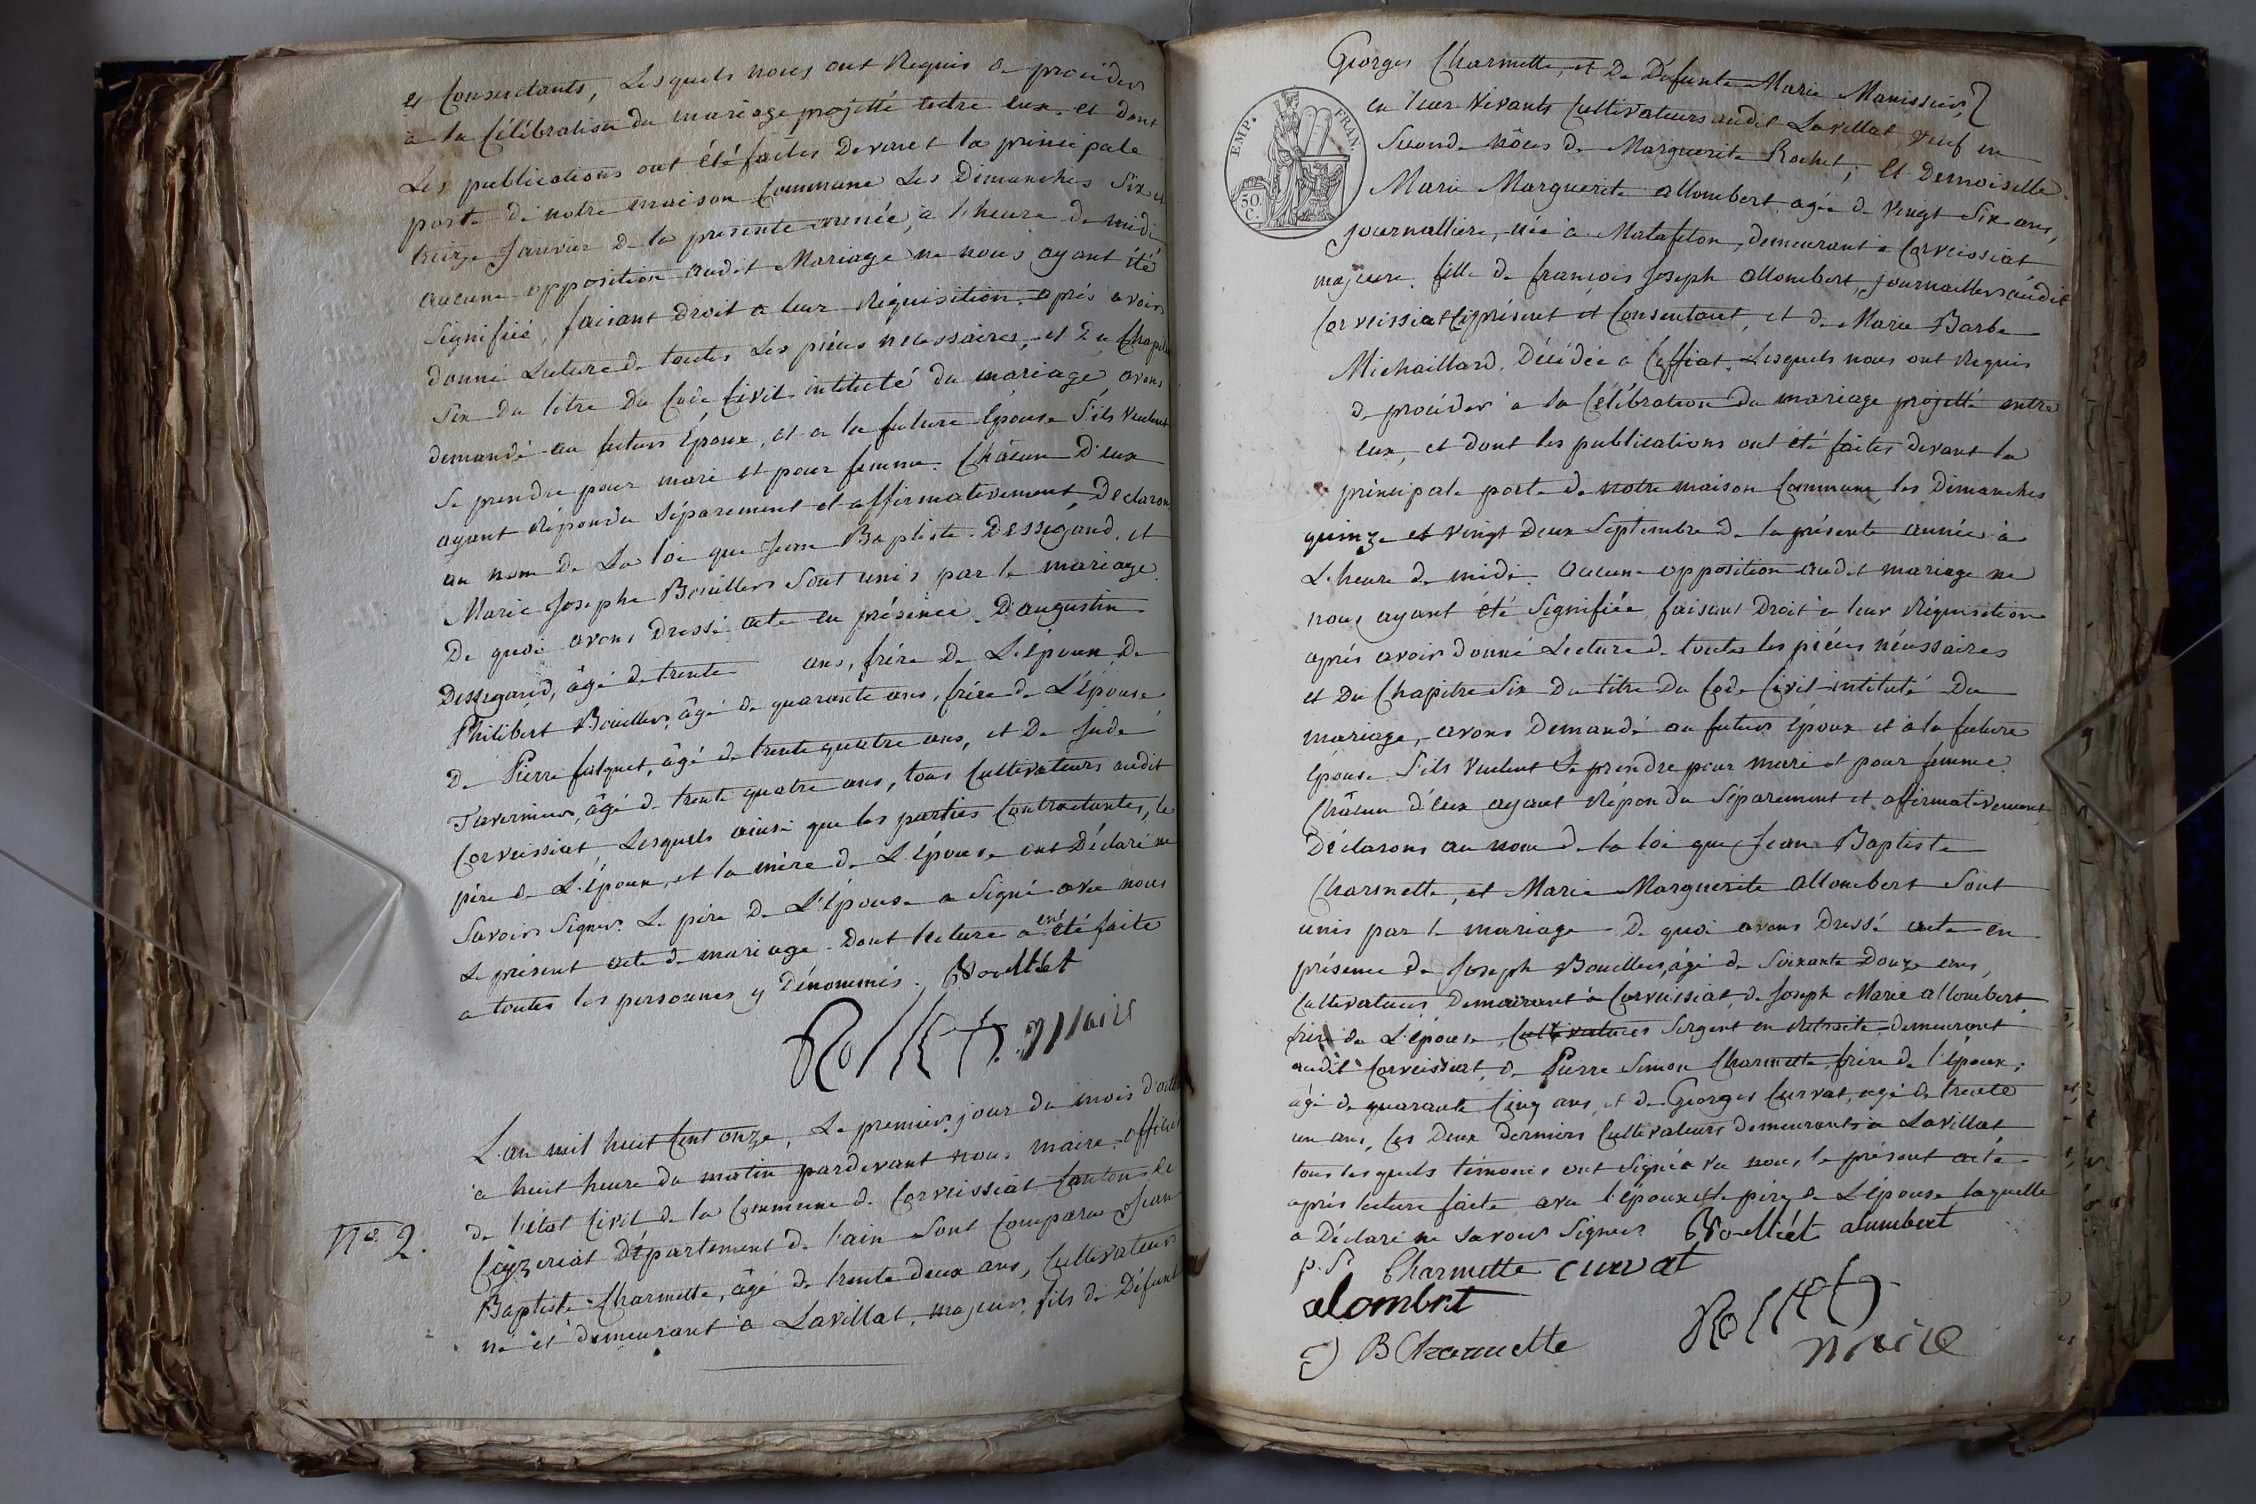 et Consentants, Lesquels nous ont Requis de procéder
a la Célébration du mariage projetté Entre eux, et dont
Les publications ont été faites devant la principale
porte de notre maison Commune Les Dimanches Six et
treize Janvier de la presente année, a l'heure de midi
aucune opposition audit Mariage ne nous ayant été
Signifiée, faisant droit a leur Réquisition après avoir
donné Lecture de toutes Les pièces nécessaires, et Du Chapitre
Six Du titre Du Code Civil intitulé du mariage avons
demandé au futur Epoux, et a la future Epouse S'ils veulent
Se prendre pour mari et pour femme. Châcun D'eux
ayant Répondu Séparement et affirmativement Déclarons
au nom de La loi que Jean Baptiste Dessegand, et
Marie Josephe Bouiller Sont unis par le mariage.
De quoi avons Dressé acte en présence D'augustin
Dessegand, âgé de trente ans, frère de L'époux, de
Philibert Bouiller, âgé de quarante ans, frère de L'épouse,
De Pierre fulquet, âgé de trente quatre ans, et De Jude
Tavernier, âgé de trente quatre ans, tous Cultivateurs audit
Corveissiat Lesquels ainsi que les parties Contractantes, le
père de L'époux, et la mère de L'épouse ont Déclaré ne
Savoir Signer. Le père De L'épouse a Signé avec nous
Le présent acte de mariage. Dont lecture a en été faite
a toutes les personnes y Dénommés. Bouilliet
Rollet. Maire
N°. 2.
L'an mil huit Cent onze, Le premier jour du mois d'octobre
a huit heure du matin pardevant nous maire officier
de l'état Civil de la Commune de Corveissiat Canton de
Ceyzeriat Département de l'ain Sont Comparu Jean
Baptiste Charmette, âgé de trente deux ans, Cultivateur
né et demeurant a Lavillat, majeur, fils de Défunt
Georges Charmette, et De Défunte Marie Manissier,
EMP. FRAN.
50. C.
en leur vivants Cultivateurs audit Lavillat veuf en
Seconde nôces de Marguerite Rochet; Et Demoiselle
Marie Marguerite allombert agée de vingt Six ans,
journalliere, née à Matafelon, demeurant a Corveissiat
majeure, fille de francois Joseph allombert, journaillers audit
Corveissiat Ci présent et Consentant, et de Marie Barbe
Michaillard, Décédée a Ceffiat. Lesquels nous ont Requis
de procéder a la Célébration du mariage projetté entre
eux, et dont les publications ont été faites devant la
principale porte de notre maison Commune, les Dimanches
quinze et vingt Deux Septembre de la présente année à
L'heure de midi. aucune opposition audit mariage ne
nous ayant été Signifiée, faisant Droit a leur Réquisition
après avoir donné Lecture de toutes les pièces nécessaires
et Du Chapitre Six Du titre Du Code Civil intitulé Du
mariage, avons Demandé au futur époux et à la future
épouse S'ils veulent Se prendre pour mari et pour femme.
Châcun d'eux ayant Répondu Séparement et affirmativement
Déclarons au nom de la loi que Jean Baptiste
Charmette, et Marie Marguerite allombert Sont
unis par le mariage. De quoi avons Dressé acte en
présence de Joseph Bouiller, âgé de Soixante Douze ans,
Cultivateur, Demeurant à Corveissiat, de Joseph Marie allombert,
frère de L'épouse, Cultivateur Sergent en Retraite demeurant
audit Corveissiat, de Pierre Simon Charmette, frère de l'époux,
agé de quarante Cinq ans, et de Georges Curvat, agé de trente
un ans, les Deux Derniers Cultivateurs demeurants a Lavillat
tous lesquels témoins ont Signé avec nous, le présent acte
après lecture faite avec l'époux et le père de L'épouse laquelle
a Déclaré ne Savoir Signer Bouilliet alumbert
p. S. Charmette curvat
alombrt Rollet
J B Charmette maire